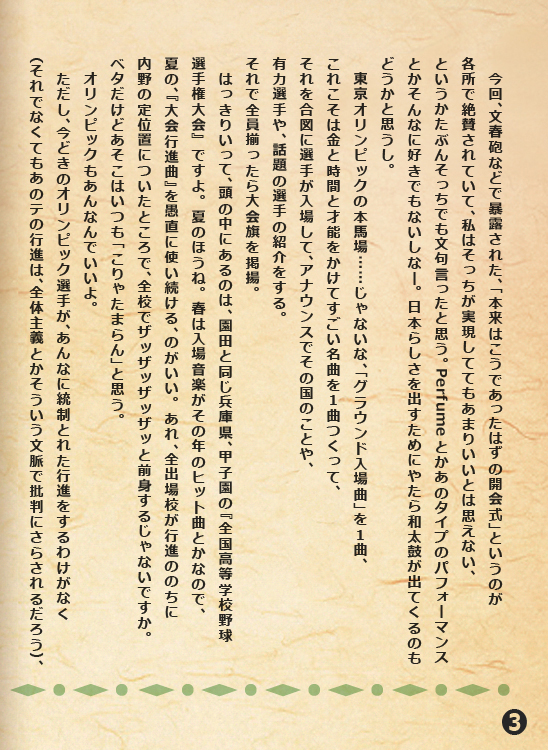 今回、文春砲などで暴露された、「本来はこうであったはずの開会式」というのが
各所で絶賛されていて、私はそっちが実現しててもあまりいいとは思えない、
というかたぶんそっちでも文句言ったと思う。Perfumeとかあのタイプのパフォーマンス
とかそんなに好きでもないしなー。日本らしさを出すためにやたら和太鼓が出てくるのも
どうかと思うし。
東京オリンピックの本馬場……じゃないな、「グラウンド入場曲」を1曲、
これこそは金と時間と才能をかけてすごい名曲を1曲つくって、
それを合図に選手が入場して、アナウンスでその国のことや、
有力選手や、話題の選手の紹介をする。
それで全員揃ったら大会旗を掲揚。
はっきりいって、頭の中にあるのは、園田と同じ兵庫県、甲子園の『全国高等学校野球
選手権大会』ですよ。夏のほうね。春は入場音楽がその年のヒット曲とかなので、
夏の、『大会行進曲』を愚直に使い続ける、のがいい。あれ、全出場校が行進ののちに
内野の定位置についたところで、全校でザッザッザッザッと前身するじゃないですか。
ベタだけどあそこはいつも「こりゃたまらん」と思う。
オリンピックもあんなんでいいよ。
ただし、今どきのオリンピック選手が、あんなに統制とれた行進をするわけがなく
(それでなくてもあのテの行進は、全体主義とかそういう文脈で批判にさらされるだろう)、
3